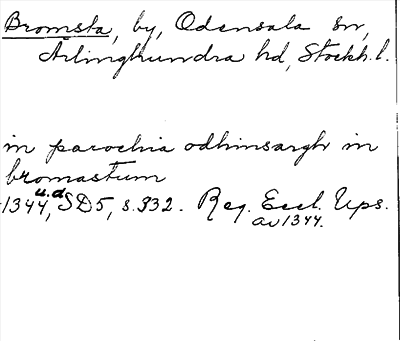 Bromsta, by, Odensala sn,
Ärlinghundra hd, Stockh. l.
in parochia odhinsargh in
bromastum
1344 u.d., SD 5, s. 332. Reg. Eccl. Ups.
av 1344.